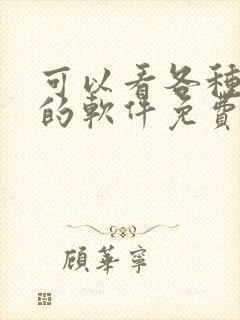 可以看各種
的軟件免費
顧華寧